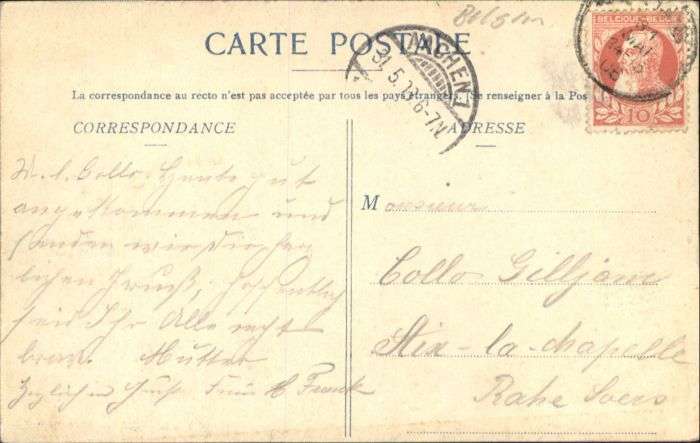 Belgien
BELGIQUE-BELGIË
10
CARTE POSTALE
AACHEN 1
31.5. 6-7N.
La correspondance au recto n'est pas acceptée par tous les pays étrangers. (Se renseigner à la Pos
CORRESPONDANCE
ADRESSE
M. l. Collo. Heute gut
angekommen und
senden wir Dir herz
lichen Gruß, hoffentlich
seid Ihr Alle recht
brav. Mutter
Herzlichen Gruß
Monsieur
Collo Gilljam
Aix-la-chapelle
Rahe Soers